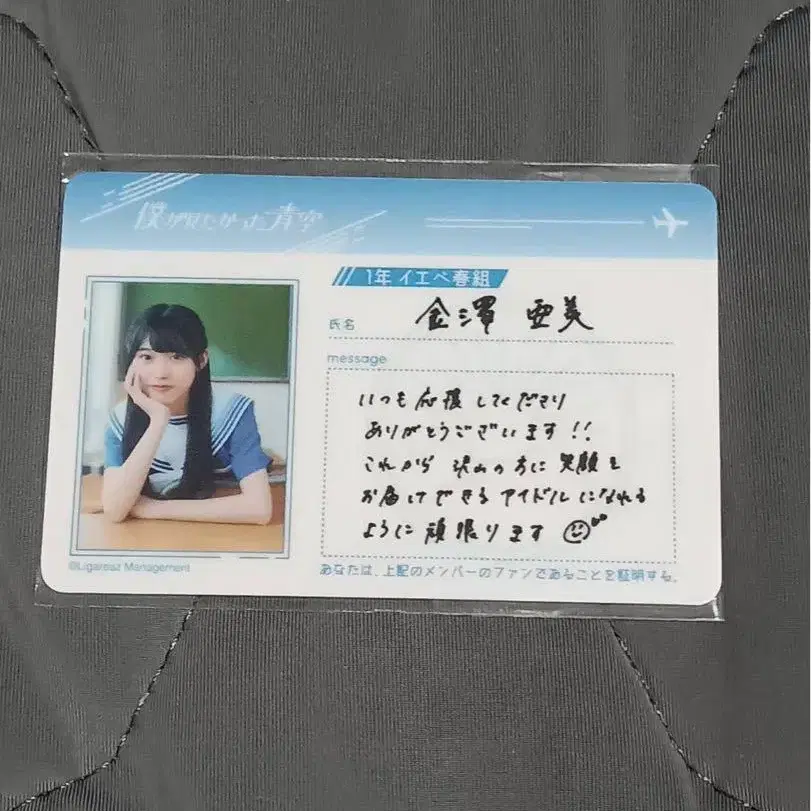 僕が見たかった青空
1年 イエベ春組
氏名 金澤 亜美
message
いつも応援してくださり
ありがとうございます!!
これから沢山の方に笑顔を
お届けできるアイドルになれる
ように頑張ります
©Ligareaz Management
あなたは、上記のメンバーのファンであることを証明する。